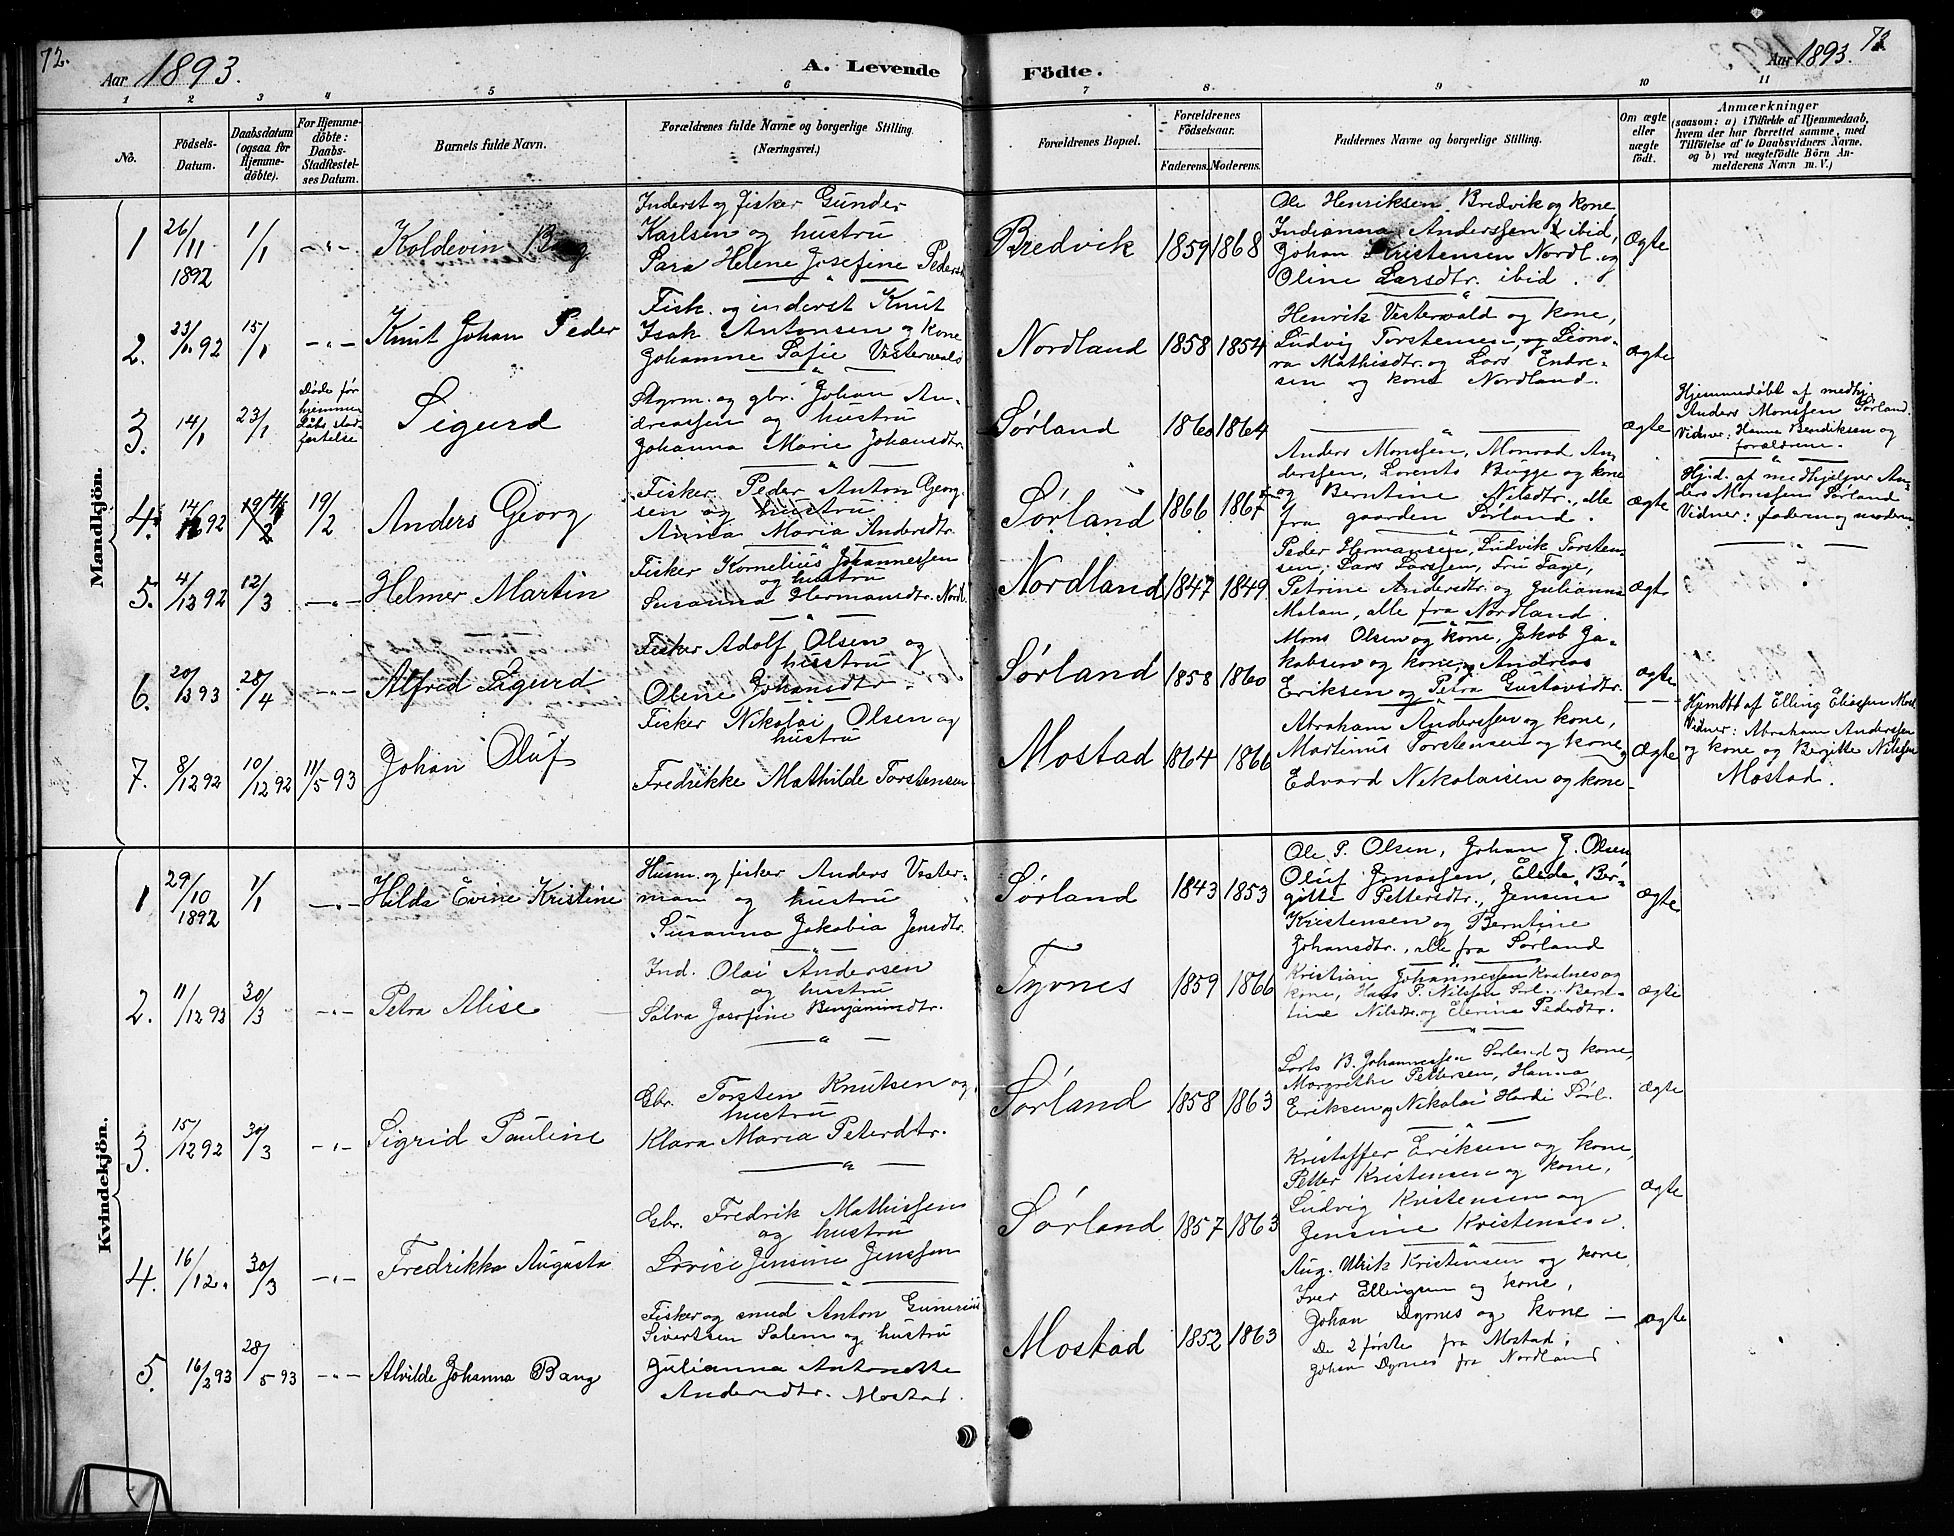 72.
Aar 1893.
A. Levende
Födte.
Aar 1893.
72
1 2 3 4 5 6 7 8 9 10 11
No.
Födsels-
Datum.
Daabsdatum
(ogsaa for
Hjemme-
döbte).
For Hjemme-
döbte:
Daabs-
Stadfæstel-
ses Datum.
Barnets fulde Navn.
Forældrenes fulde Navne og borgerlige Stilling.
(Næringsvei.)
Forældrenes Bopæl.
Forældrenes
Födselsaar.
Faderens. Moderens.
Faddernes Navne og borgerlige Stilling.
Om ægte
eller
uægte
födt.
Anmærkninger
(saasom: a) i Tilfælde af Hjemmedaab,
hvem der har forrettet samme, med
Tilföielse af to Daabsvidners Navne.
og b) ved uægtefödte Börn An-
melderens Navn m. V.)
Mandkjön.
1
26/11
1892
1/1
- " -
Koldevin Bang
Inderst og fisker Gunder
Karlsen og hustru
Sara Helene Josefine Peders
Bredvik
1859 1868
Ole Henriksen Bredvik og kone,
Indianna Anderssen ibid,
Johan Kristensen Nordl. og
Oline Larsdtr. ibid.
Ægte
2.
92
15/1
- " -
Knut Johan Peder
Fisk. og inderst Knut
Isak Antonsen og kone
Johanne Sofie Vesterwald
Nordland
1858 1854
Henrik Vesterwald og kone,
Ludvig Torstensen, og Leono-
ra Mathisdtr. og Lars Endre-
sen og kone Nordland.
ægte
3.
14/1
23/1
Døde før
hjemme
daabs stad-
fæstelse
Sigurd
Styrm. og gbr. Johan An-
dreassen og hustru
Johanna Marie Johansdtr.
Sørland
1860 1864
ægte
Hjemmedøbt af medhj.
Anders Monssen Sørland.
Vidner: Hanna Bendiksen og
forældrene.
4.
14/12 92
19/2
Anders Georg
Fisker Peder Anton Georg-
sen og hustru
Anna Maria Andersdtr.
Sørland
1866 1867
Anders Monssen, Monrad An-
derssen, Lorents Bugge og kone
og Berntine Nilsdtr., alle
fra gaarden Sørland.
Ægte
Hjd. af medhjælper An-
ders Monssen Sørland
Vidner: faderen og moderen
5.
4/12 92
12/3
- " -
Helmer Martin
Fisker Kornelius Johannessen
og hustru
Susanna Hermansdtr. Nordl.
Nordland
1847 1849
Peder Hermansen, Ludvik Torsten-
sen, Lars Larssen, Fru Fage,
Petrine Andersdtr. og Julianna
Malan, alle fra Nordland.
Ægte
6.
20/3 93
28/4
- " -
Alfred Sigurd
Fisker Adolf Olsen og
husstru
Olene Johansdtr.
Sørland
1858 1860
Mons Olsen og kone, Jakob Ja-
kobsen og kone, Andreas
Eriksen og Petra Gustavsdtr.
ægte
7.
8/12 92
10/12 92
11/5 93
Johan Oluf
Fisker Nikolai Olsen og
hustru
Fredrikke Mathilde Torstensen
Mostad
1864 1866
Abraham Anderssen og kone,
Martinus Torstensen og kone
Edvard Nikolaisen og kone
Ægte
Hjemdbt af Elling Eliassen Most
Vidner: Abraham Anderssen
og kone og Bergitte Nilssen
Mostad.
Kvindekjön.
1
29/10
1892
1/1
- " -
Hilda Evine Kristine
Husm. og fisker Anders Vester-
man og hustru
Susanna Jakobia Jensdtr.
Sørland
1843 1853
Ole P. Olsen, Johan J. Olsen
Oluf Jonassen, Elida Ber-
gitte Pettersdtr., Jensine
Kristensen og Berntine
Johansdtr., alle fra Sørland
ægte
2.
11/12 92
30/3
- " -
Petra Alise
Ind. Olai Andersen
og hustru
Salva Josefine Benjaminsdtr.
Tyvnes
1859 1866
Kristian Johannessen Kvalnes og
kone, Hans P. Nilssen Sørl., Bern-
tine Nilsdtr. og Elerina Pedersdtr.
ægte
3.
15/12 92
30/3
- " -
Sigrid Pauline
Gbr. Torsten Knutsen og
hustru
Klara Maria Petersdtr.
Sørland
1858 1863
Lorts B. Johannessen Sørland og kone,
Margrethe Pettersen, Hanna
Eriksen og Nikolai Hardi Sørl.
ægte
4.
16/12.
30/3
- " -
Fredrikka Augusta
Gbr. Fredrik Mathissen
og hustru
Lovise Jensine Jenssen
Sørland
1857 1863
Kristoffer Eriksen og kone,
Petter Kristensen og kone,
Ludvig Kristensen og
Jensine Kristensen.
ægte
5.
16/2 93
28/5 93
- " -
Alvilde Johanna Bang
Fisker og smed Anton Gunerius
Sivertsen Salem og hustru
Julianna Antonette
Andersdtr. Mostad.
Mostad
1852 1863
Aug. Ulrik Kristensen og kone,
Iver Ellingsen og kone,
Johan Dyrnes og kone —
De 2 første fra Mostad,
Johan Dyrnes fra Nordland
ægte